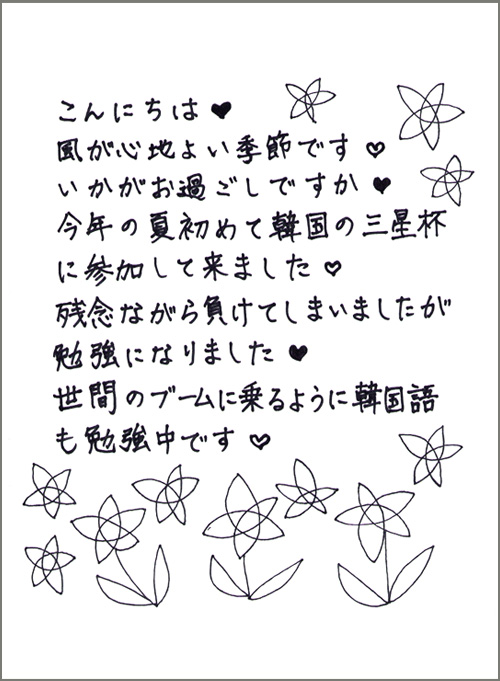 こんにちは♥
風が心地よい季節です♡
いかがお過ごしですか♥
今年の夏初めて韓国の三星杯
に参加して来ました♡
残念ながら負けてしまいましたが
勉強になりました♥
世間のブームに乗るように韓国語
も勉強中です♡